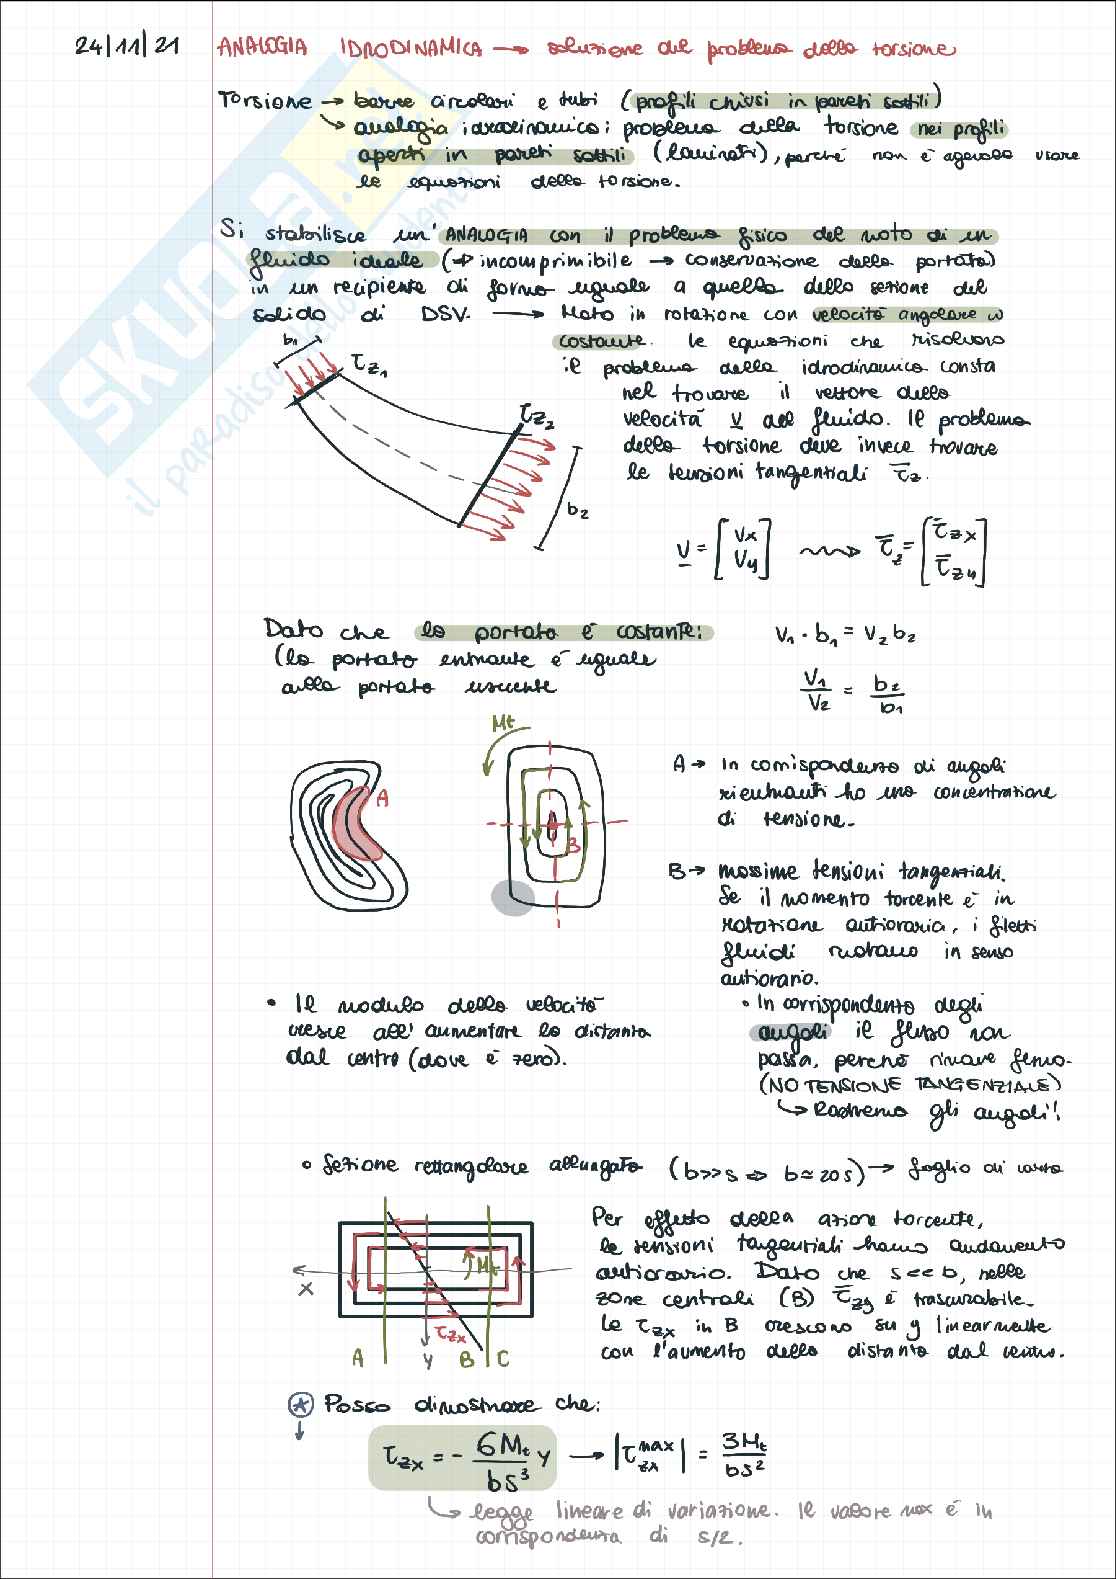 24/11/21 ANALOGIA IDRODINAMICA → soluzione del problema della torsione
Torsione → barre circolari e tubi (profili chiusi in pareti sottili)
↳ analogia idrodinamica: problema della torsione nei profili
aperti in pareti sottili (laminati), perché non è agevole usare
le equazioni della torsione.
Si stabilisce un' ANALOGIA con il problema fisico del moto di un
fluido ideale (→ incomprimibile → conservazione della portata)
in un recipiente di forma uguale a quella della sezione del
solido di DSV. → Moto in rotazione con velocità angolare ω
costante. Le equazioni che risolvono
il problema della idrodinamica consta
nel trovare il vettore della
velocità v del fluido. Il problema
della torsione deve invece trovare
le tensioni tangenziali τ̅z.
b1
τz1
τz2
b2
v = [vx vy] ⇝ τ̅z = [τ̅zx τ̅zy]
Dato che la portata è costante:
(la portata entrante è uguale
alla portata uscente
v1 · b1 = v2 b2
v1/v2 = b2/b1
Mt
A
B
A → In corrispondenza di angoli
rientranti ho una concentrazione
di tensione.
B → massime tensioni tangenziali.
Se il momento torcente è in
rotazione antioraria, i filetti
fluidi ruotano in senso
antiorario.
• Il modulo della velocità
cresce all'aumentare la distanza
dal centro (dove è zero).
• In corrispondenza degli
angoli il flusso non
passa, perché rimane fermo.
(NO TENSIONE TANGENZIALE)
↳ Raduremo gli angoli!
• Sezione rettangolare allungata (b>>s ⇔ b≃20s) → foglio di carta
x
Mt
τzx
A y B C
Per effetto della azione torcente,
le tensioni tangenziali hanno andamento
antiorario. Dato che s<<b, nelle
zone centrali (B) τ̅zy è trascurabile.
Le τzx in B crescono su y linearmente
con l'aumento della distanza dal centro.
* Posso dimostrare che:
↓
τzx = - 6Mt/bs³ y → |τzx^max| = 3Mt/bs²
↳ legge lineare di variazione. Il valore max è in
corrispondenza di s/2.
SKUOLA.net
il paradiso dello studente